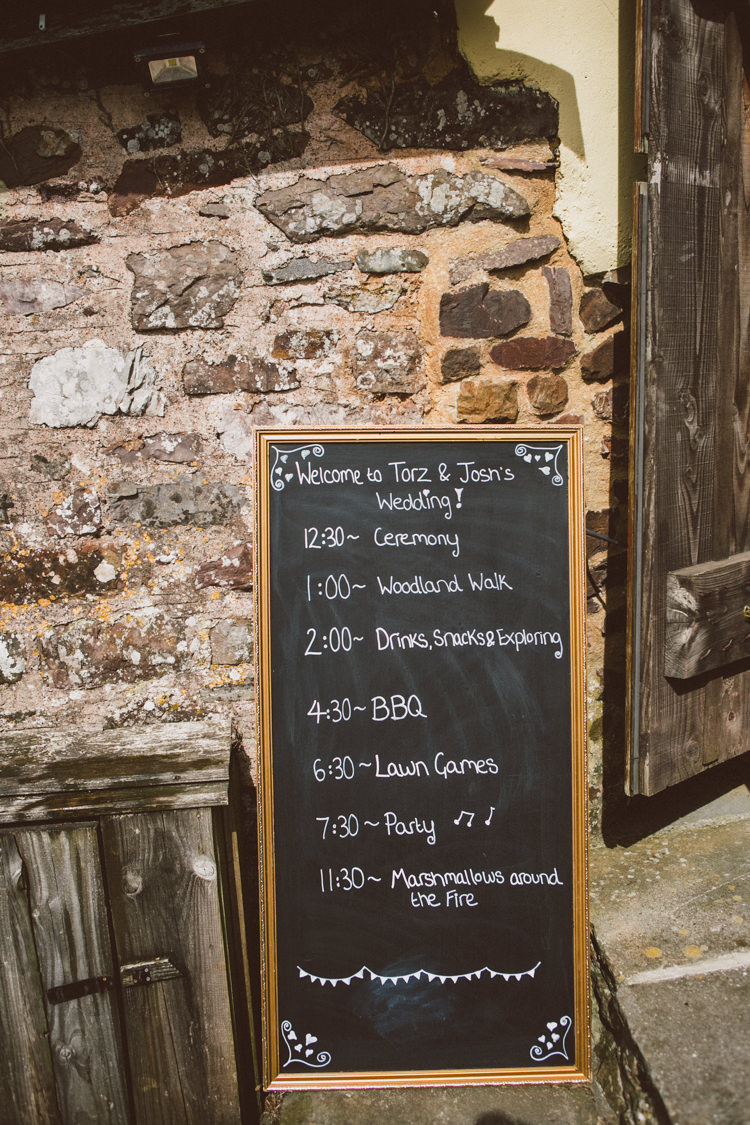 Welcome to Torz & Josh's
Wedding!
12:30~ Ceremony
1:00~ Woodland Walk
2:00~ Drinks, Snacks & Exploring
4:30~ BBQ
6:30~ Lawn Games
7:30~ Party
11:30~ Marshmallows around
the Fire